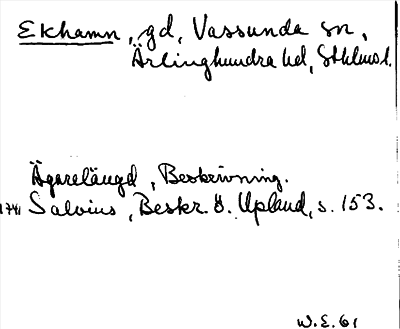 Ekhamn, gd, Vassunda sn,
Ärlinghundra hd, Sthlmsl.
Ägarelängd, Beskrivning.
1741 Salvius, Beskr. ö. Upland, s. 153.
W.E. 61